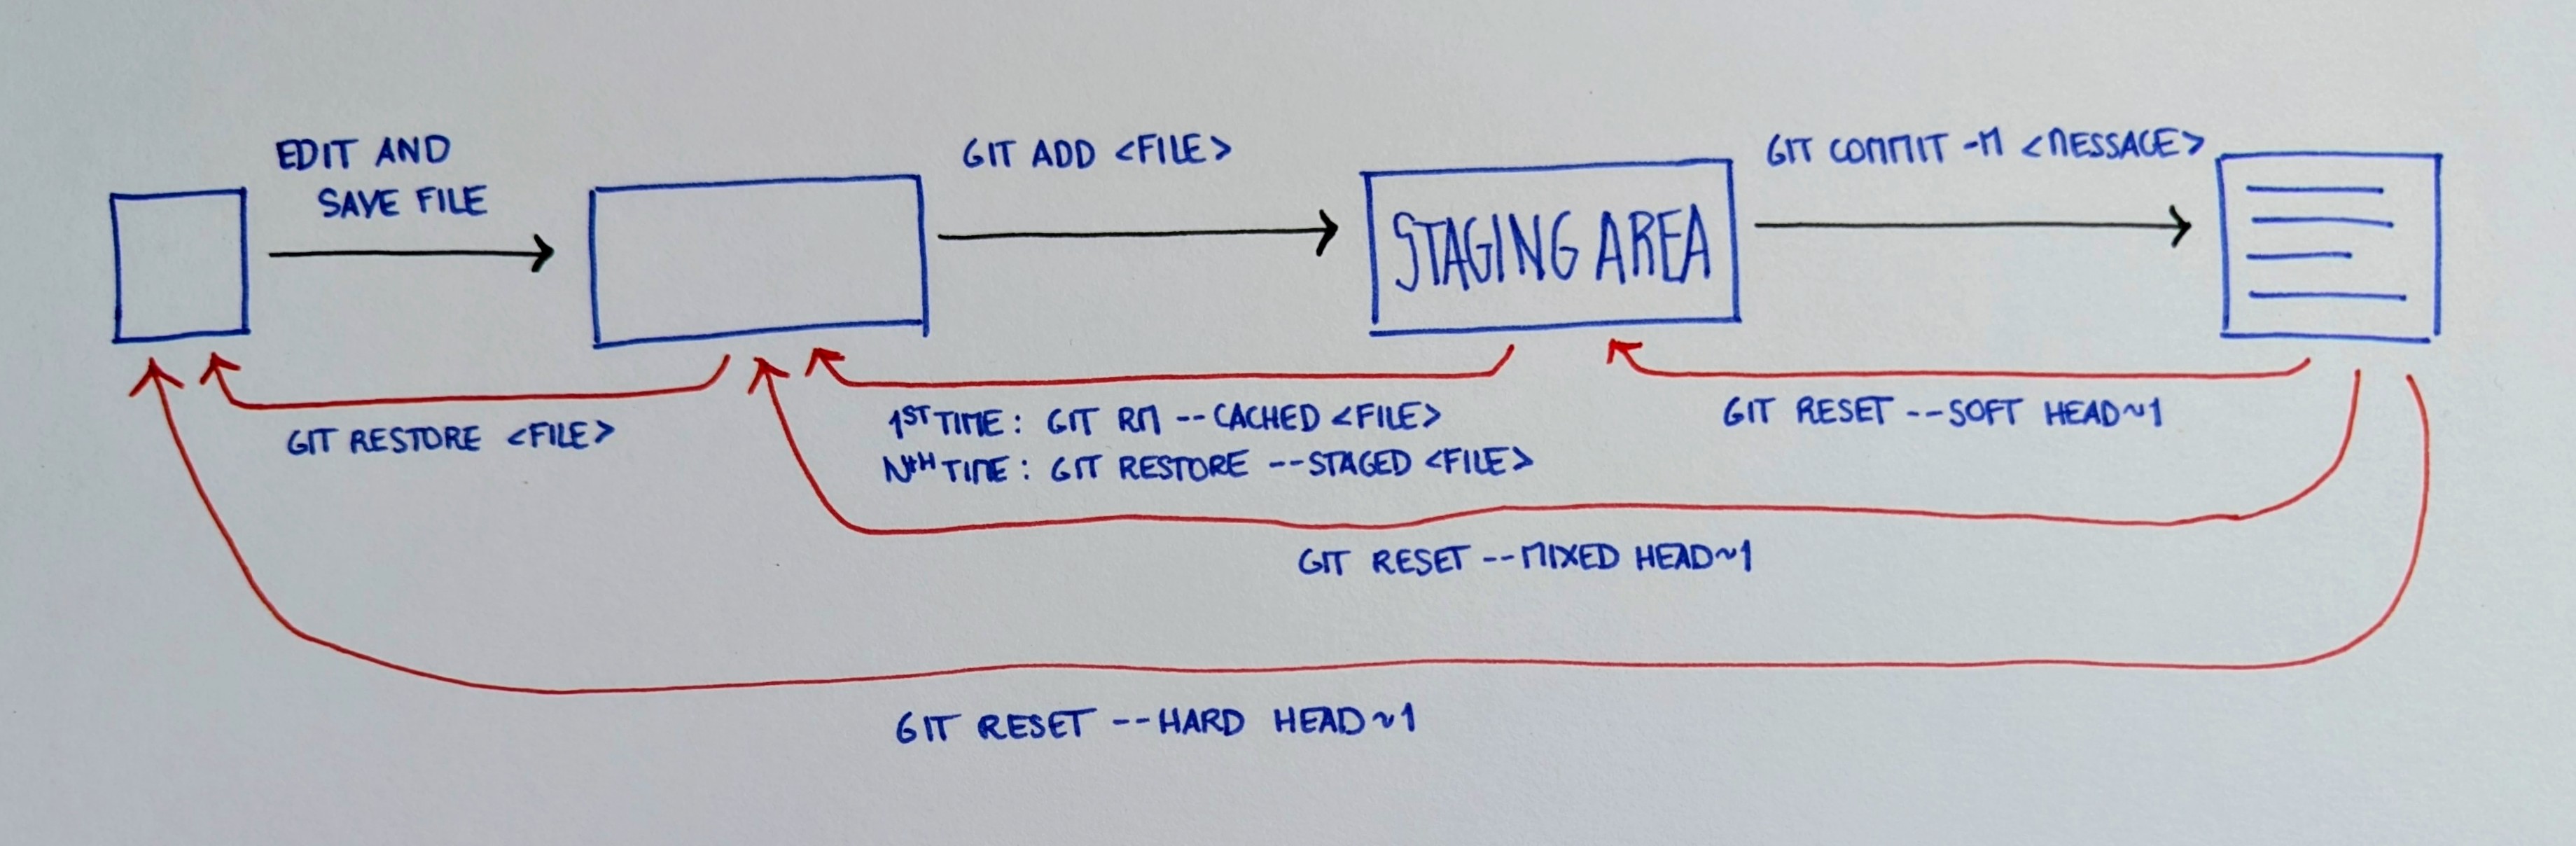 EDIT AND
SAVE FILE
GIT ADD <FILE>
GIT COMMIT -M <MESSAGE>
STAGING AREA
GIT RESTORE <FILE>
1ST TIME: GIT RM --CACHED <FILE>
NTH TIME: GIT RESTORE --STAGED <FILE>
GIT RESET --SOFT HEAD~1
GIT RESET --MIXED HEAD~1
GIT RESET --HARD HEAD~1